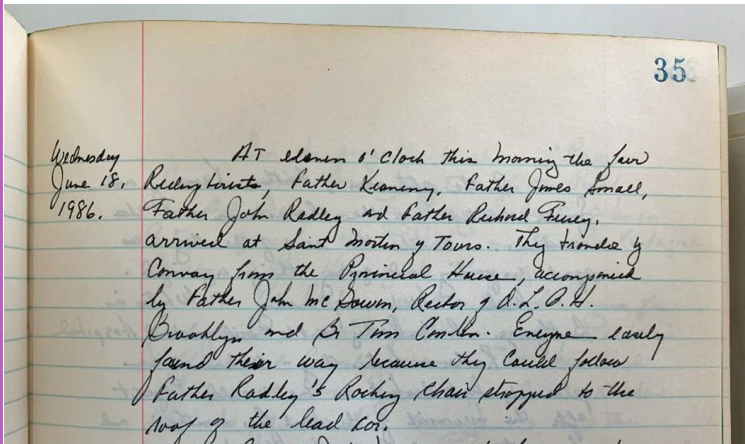 35
Wednesday
June 18,
1986.
At eleven o'clock this morning the four
Redemptorists, Father Kearney, Father James Small,
Father John Radley and Father Richard Furey,
arrived at Saint Martin of Tours. They travelled by
Convoy from the Provincial House, accompanied
by Father John McGowan, Rector of O.L.P.H.
Brooklyn and Br Tom Conlon. Everyone easily
found their way because they could follow
Father Radley's Rocking Chair strapped to the
roof of the lead car.